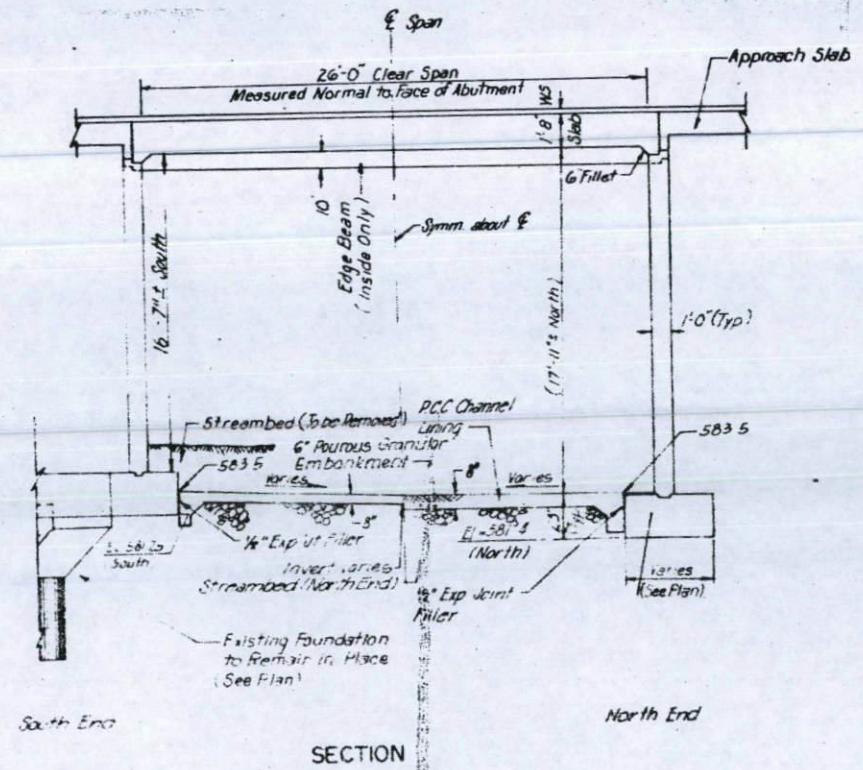 ℄ Span
Approach Slab
26'-0" Clear Span
Measured Normal to Face of Abutment
WS
1'-8"
Slab
6" Fillet
10"
Edge Beam
(Inside Only)
Symm. about ℄
South
(17'-11"± North)
1'-0" (Typ)
Streambed (To be Removed)
P.C.C Channel
Lining
583.5
583.5
6" Pourous Granular
Embankment
8"
Varies
Varies
½" Exp Jt Filler
El = 581
(North)
South
Invert varies
Streambed (North End)
½" Exp Joint
Filler
Varies
(See Plan)
Existing Foundation
to Remain in Place
(See Plan)
South End
North End
SECTION